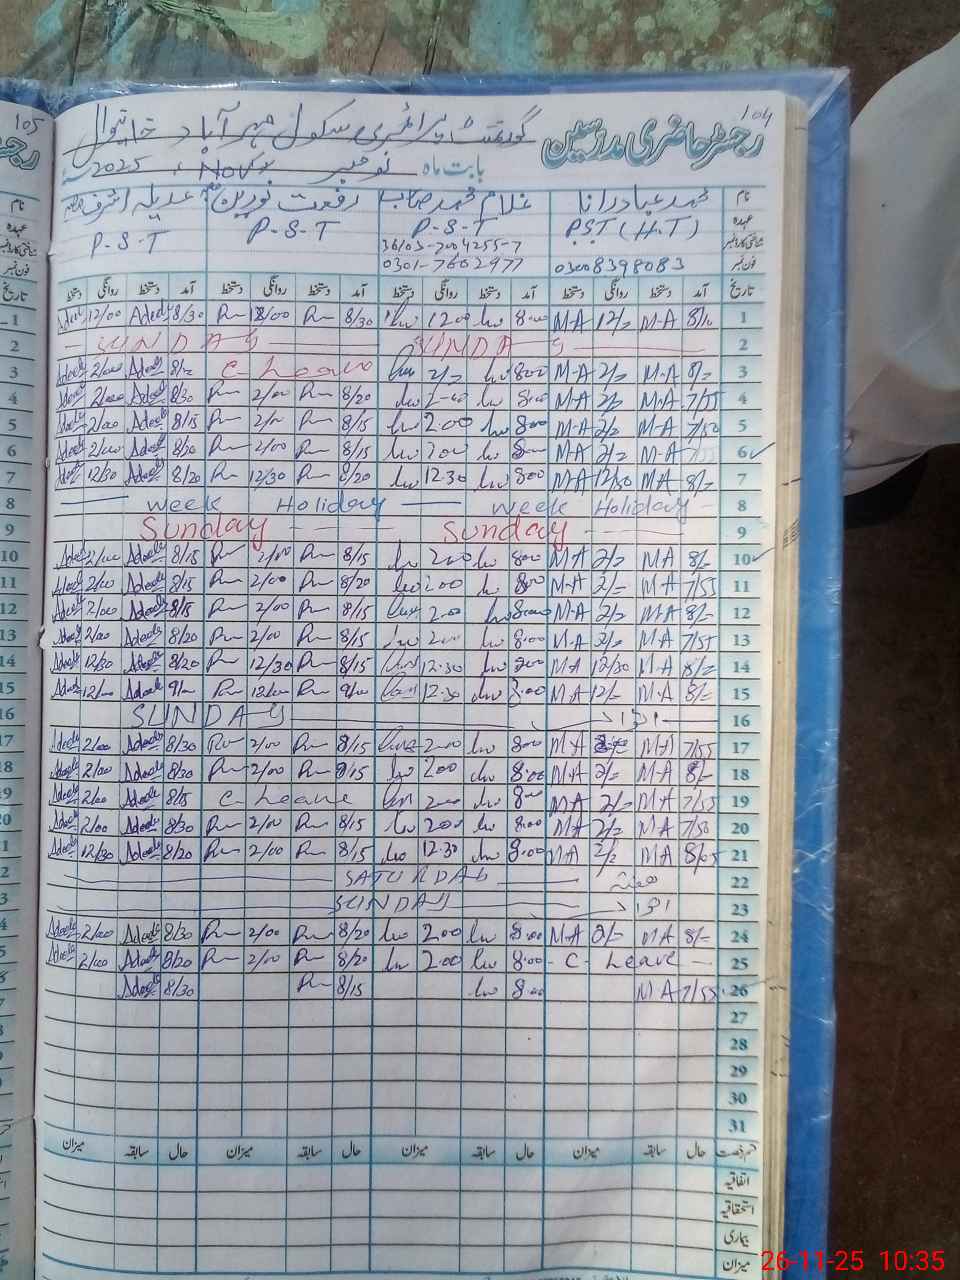 104
رجسٹر حاضری مدرسین گورنمنٹ پرائمری سکول مہر آباد خانیوال
بابت ماہ نومبر Nov، 2025
نام محمد عباد رانا غلام محمد صاب رفعت نورین عدیلہ اشرف
عہدہ P.S.T (H.T) P-S-T P-S-T P-S-T
شناختی کارڈ نمبر 36103-7004255-7
فون نمبر 03008398083 0301-7602977
تاریخ آمد دستخط روانگی دستخط آمد دستخط روانگی دستخط آمد دستخط روانگی دستخط آمد دستخط روانگی دستخط
1 M-A 12/= M-A 8:00 12:00 8/30 12/00 8/30 Adeel 12/00
2 SUNDAY SUNDAY
3 8/= M-A 2/= M-A 8:00 2/= C-Leave Adeel 2/00
4 7/55 M-A 2/= M-A 8:00 2:00 8/20 2/00 8/30 Adeel 2/00
5 7/50 M-A 2/= M-A 8:00 2:00 8/15 2/00 8/15 Adeel 2/00
6 M-A 2/= M-A 2:00 8/15 2/00 8/30 Adeel 2/00
7 8/= M-A 12/30 M-A 8:00 12:30 8/20 12/30 8/20 Adeel 12/30
8 week Holiday week Holiday
9 Sunday Sunday
10 8/= M A 2/= M A 8:00 2:00 8/15 2/00 8/15 Adeel 2/00
11 7/55 M-A 2/= M-A 8:00 2:00 8/20 2/00 8/15 Adeel 2/00
12 8/= M-A 2/= M-A 8:00 2:00 8/15 2/00 8/15 Adeel 2/00
13 7/55 M-A 2/= M-A 8:00 2:00 8/15 2/00 8/20 Adeel 2/00
14 8/= M-A 12/30 M-A 8:00 12:30 8/15 12/30 8/20 Adeel 12/30
15 8/= M-A 12/= M-A 8:00 12:30 9/00 12/00 9/00 Adeel 12/00
16 اتوار SUNDAY
17 7/55 M A M A 8:00 2:00 8/15 2/00 8/30 Adeel 2/00
18 8/= M-A 2/= M-A 8:00 2:00 8/15 2/00 8/30 Adeel 2/00
19 7/55 M A 2/= M A 8:00 2:00 C-Leave 8/15 Adeel 2/00
20 7/50 M A 2/= M A 8:00 2:00 8/15 2/00 8/30 Adeel 2/00
21 8/05 M A 2/= M A 8:00 12:30 8/15 2/00 8/20 Adeel 12/30
22 ھفتہ SATURDAY
23 اتوار SUNDAY
24 8/= M A 2/= M A 8:00 2:00 8/20 2/00 8/30 Adeel 2/00
25 C-Leave 8:00 2:00 8/20 2/00 8/20 Adeel 2/00
26 7/55 M A 8:00 8/15 8/30 Adeel
27
28
29
30
31
قسم رخصت حال سابقہ میزان حال سابقہ میزان حال سابقہ میزان حال سابقہ میزان
اتفاقیہ
استحقاقیہ
بیماری
میزان
26-11-25 10:35
105